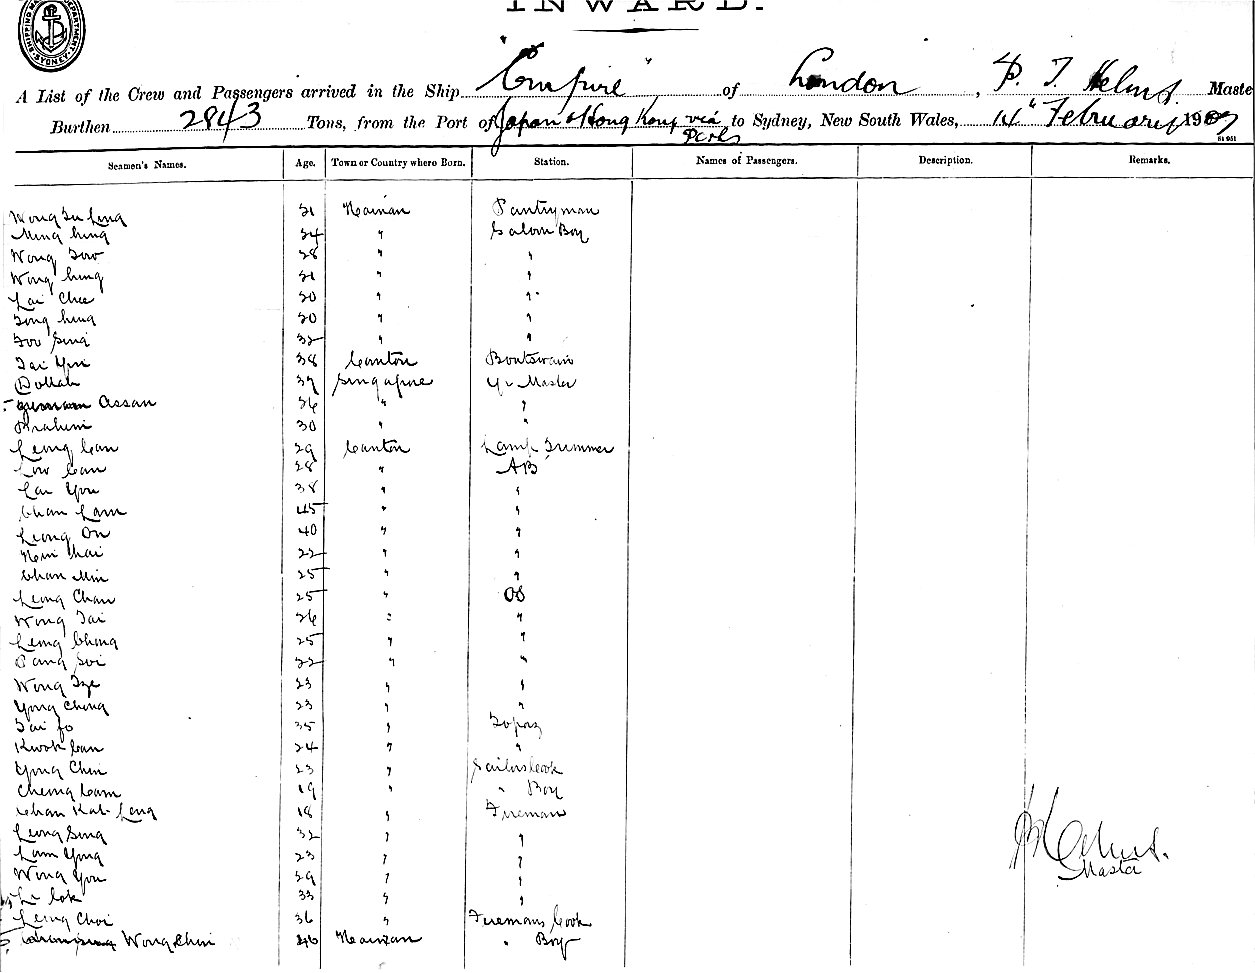 INWARD.
A List of the Crew and Passengers arrived in the Ship "Empire" of London, P. T. Helms. Maste
Burthen 2843 Tons, from the Port of Japan & Hong Kong via Ports to Sydney, New South Wales, 14" February 1907
Seamen's Names. Age. Town or Country where Born. Station. Names of Passengers. Description. Remarks.
Hainan Pantryman
Ming hing 24 " Saloon Boy
Wong 28 " "
Wong hing 21 " "
Lai Chee 20 " "
Song hing 20 " "
Foo Sing 32 " "
Tai Yin 38 Canton Boatswain
Dollah 37 Singapore Qr Master
Assan 36 " "
Ibrahim 30 " "
Leong Can 29 Canton Lamp Trimmer
Low Can 28 " AB
Lai You 38 " "
Chan Lam 45 " "
Leong On 40 " "
22 " "
Chan Min 25 " "
Leong Chan 25 " OS
Wong Tai 26 " "
Leong Chong 25 " "
22 " "
Wong 23 " "
Yong Chong 23 " "
Tai Fo 35 " Topaz
Kwok Can 24 " "
Yong Chin 23 " Sailors Cook
Cheong Cam 19 " " Boy
Chan Kat Leng 18 " Fireman
Leong Sing 32 " "
Lam Yong 23 " "
Wong You 29 " "
Li Cok 33 " "
Leong Choi 36 " Firemans Cook
Wong Hainan " Boy
Helms.
Master